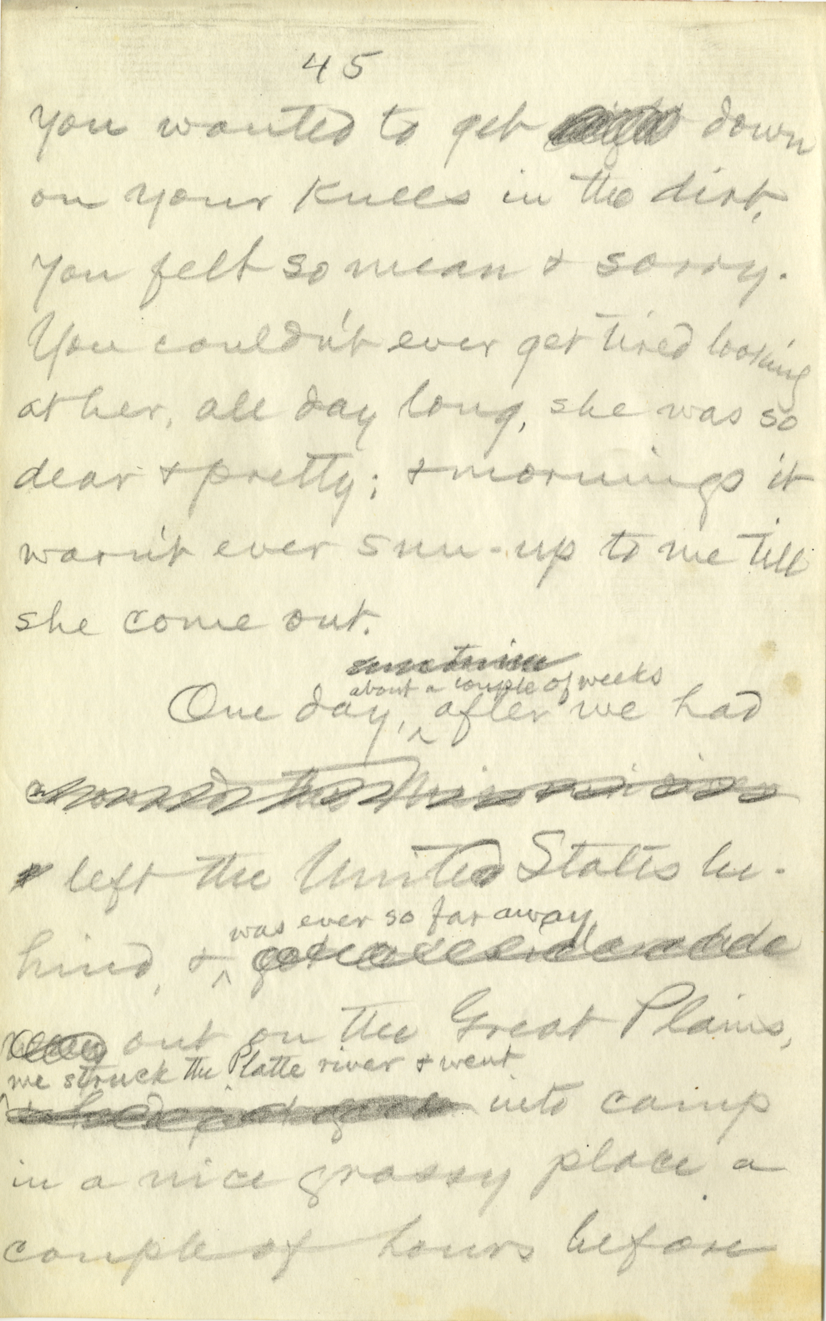 45
you wanted to get down
on your knees in the dirt,
you felt so mean & sorry.
You couldn't ever get tired looking
at her, all day long, she was so
dear & pretty; & mornings it
warn't ever sun-up to me till
she come out.
about a couple of weeks
One day, ^ after we had
left the United States be-
was ever so far away
hind, & ^
out on the Great Plains,
we struck the Platte river & went
into camp
in a nice grassy place a
couple of hours before